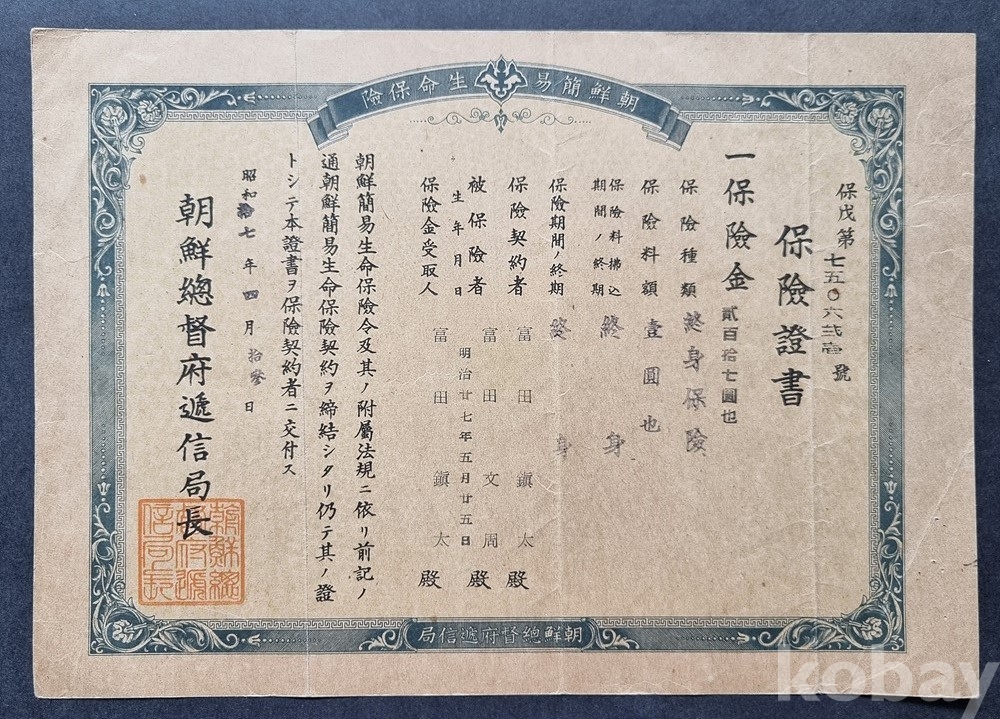 朝鮮簡易生命保險
保戊第七五〇六弐壹號
保險證書
一保險金貳百拾七圓也
保險種類 終身保險
保險料額 壹圓也
保險料拂込期間ノ終期 終身
保險期間ノ終期 終身
保險契約者 富田鎭太殿
被保險者 富田文周殿
生年月日 明治廿七年五月廿五日
保險金受取人 富田鎭太殿
朝鮮簡易生命保險令及其ノ附屬法規ニ依リ前記ノ
通朝鮮簡易生命保險契約ヲ締結シタリ仍テ其ノ證
トシテ本證書ヲ保險契約者ニ交付ス
昭和拾七年四月拾參日
朝鮮總督府遞信局長
朝鮮總督府遞信局長
朝鮮總督府遞信局
kobay